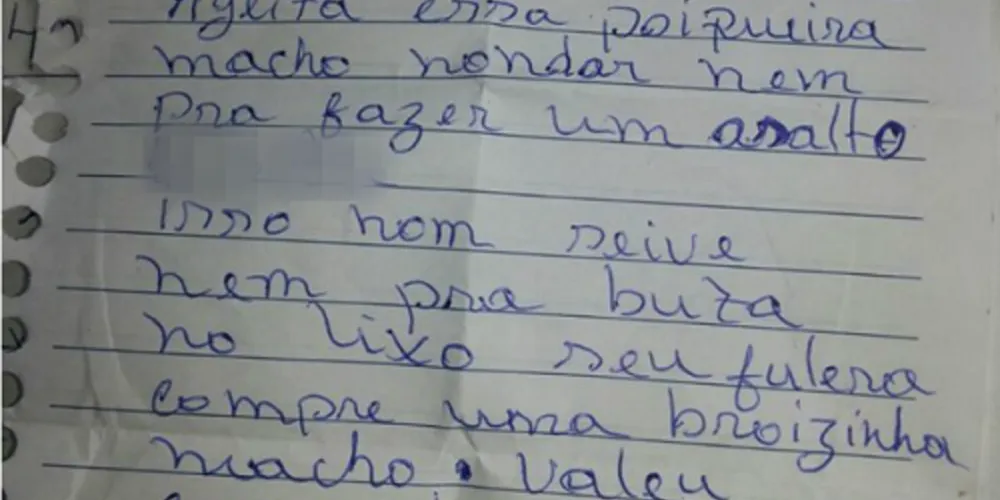 essa poipueira
macho nondar nem
pra fazer um asalto
isso nom seive
nem pra buta
no lixo seu fulera
compre uma broizinha
macho. valeu